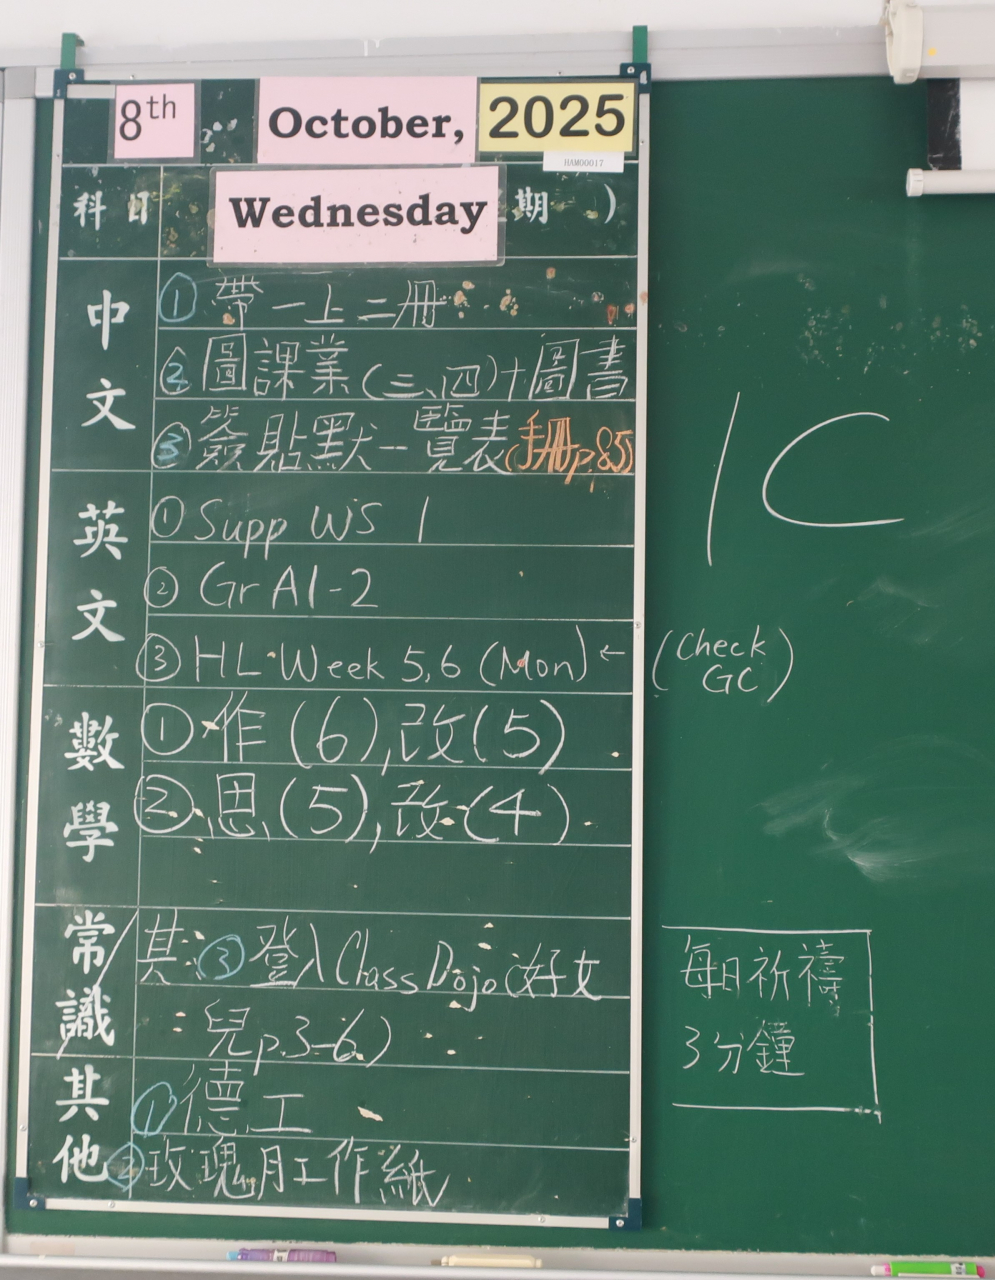 8th October, 2025
HAM00017
科目 Wednesday 期 )
中文
① 帶一上二冊
② 圖課業(三、四)+圖書
③ 簽貼默一覽表(手冊p.85)
英文
① Supp WS 1
② Gr A1-2
③ HL Week 5,6 (Mon) ← (Check GC)
數學
① 作(6),改(5)
② 思(5),改(4)
常識
其: ③ 登入Class Dojo(好女
兒p.3-6)
其他
① 德工
② 玫瑰月工作紙
1C
每日祈禱
3分鐘